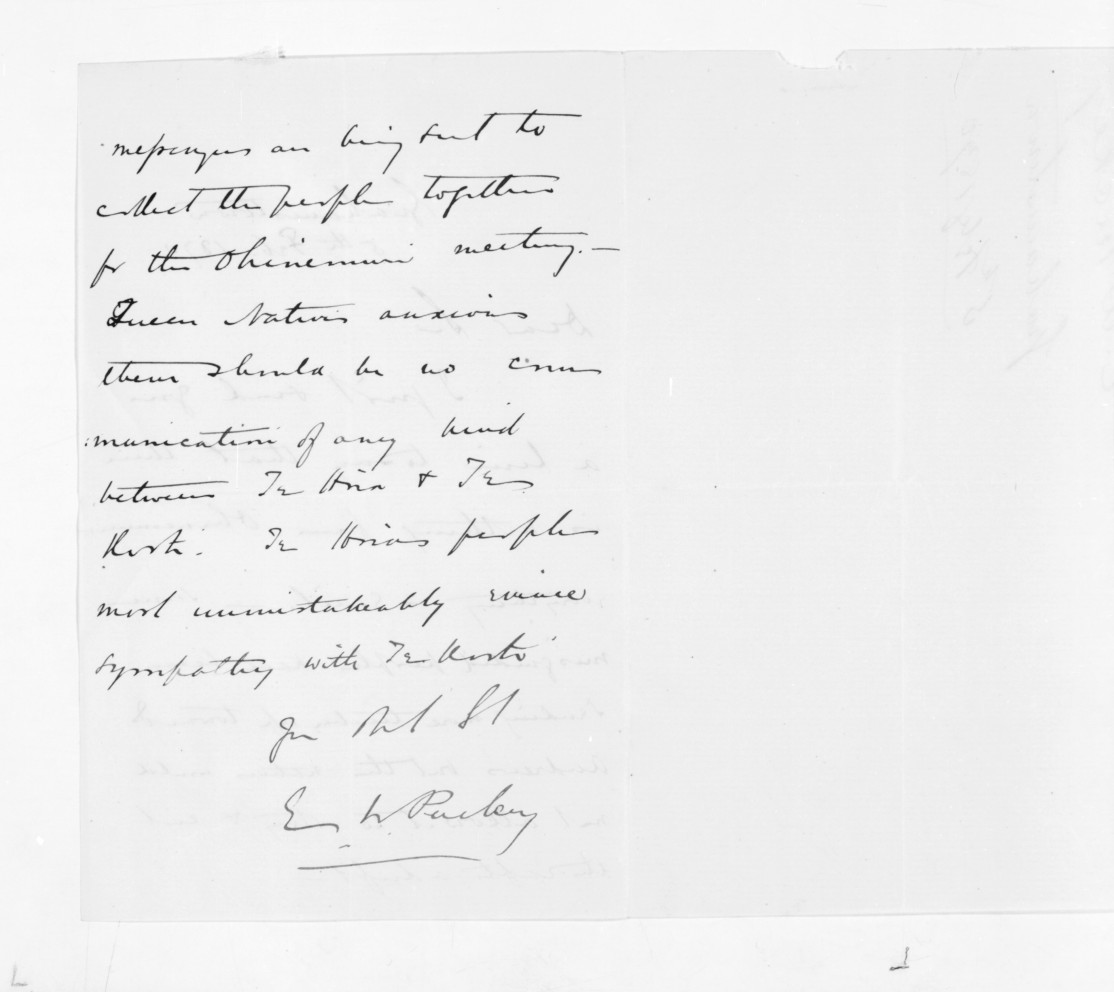 messengers are being sent to
collect the people together
for the Ohinemuri meeting. —
Queen Natives anxious
there should be no com
:munication of any kind
between Te Hira & Te
Kooti. Te Hira's people
most unmistakeably evince
sympathy with Te Kooti
Yr Obt St
E W Puckey